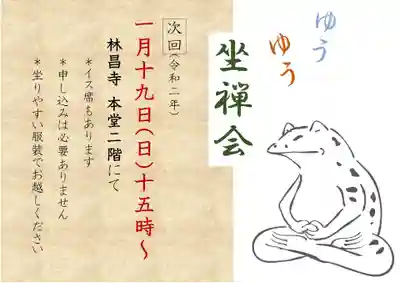 ゆう
ゆう
坐禅会
次回(令和二年)
一月十九日(日)十五時～
林昌寺 本堂二階にて
＊イス席もあります
＊申し込みは必要ありません
＊坐りやすい服装でお越しください